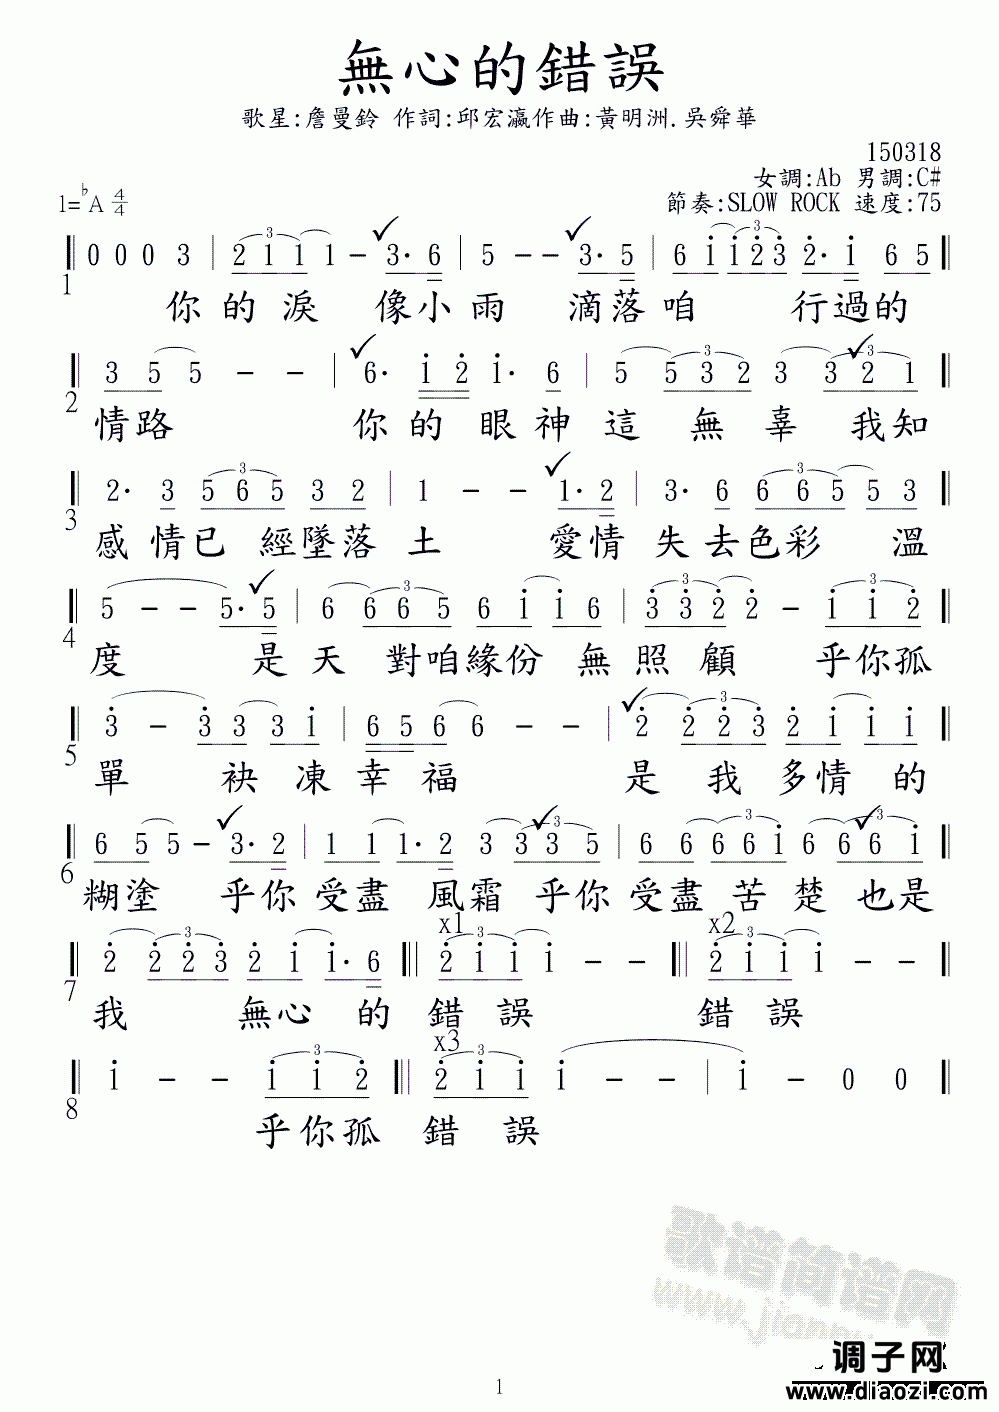 無心的錯誤
歌星:詹曼鈴 作詞:邱宏瀛作曲:黃明洲.吳舜華
150318
女調:Ab 男調:C#
1=♭A 4/4 節奏:SLOW ROCK 速度:75
0 0 0 3 | 2 1 1 1 1 - 3· 6 | 5 - - 3· 5 | 6 i i 2 3 2· i 6 5
1 你的淚 像小雨 滴落咱 行過的
3 5 5 - - | 6· i 2 i· 6 | 5 5 3 2 3 3 2 1
2 情路 你的眼神這無辜 我知
2· 3 5 6 5 3 2 | 1 - - 1· 2 | 3· 6 6 6 5 5 3
3 感情已經墜落土 愛情失去色彩 溫
5 - - 5· 5 | 6 6 6 5 6 i i 6 | 3 3 2 2 - i i 2
4 度 是天對咱緣份無照顧 乎你孤
3 - 3 3 3 i | 6 5 6 6 - - | 2 2 2 3 2 i i i
5 單 袂凍幸福 是我多情的
6 5 5 - 3· 2 | 1 1 1· 2 3 3 3 5 | 6 6 6 i 6 6 6 i
6 糊塗 乎你受盡風霜乎你受盡苦楚也是
x1 x2
2 2 2 3 2 i i· 6 | 2 i i i i - - | 2 i i i i - -
7 我 無心的錯誤 錯誤
x3
i - - i i 2 | 2 i i i i - - | i - 0 0
8 乎你孤 錯誤
歌谱简谱网
调子网
www.diaozi.com
1